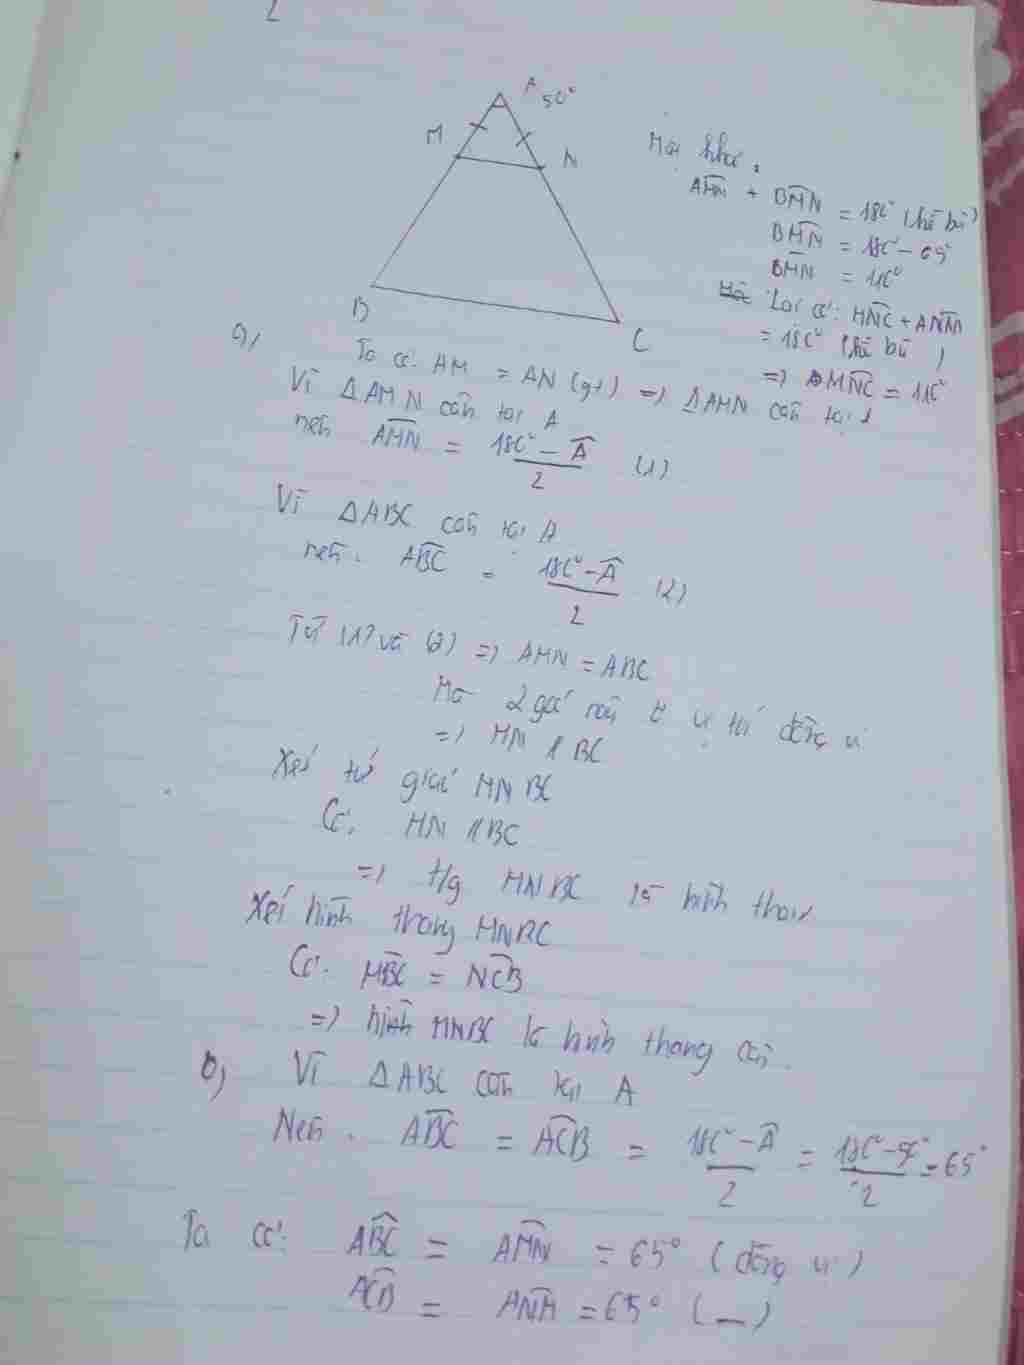 2
A 50°
M
N
B
C
Mặt khác:
AMN + BMN = 180° (kề bù)
BMN = 180° - 65°
BMN = 115°
Lại có: MNC + ANM
= 180° (kề bù)
=> MNC = 115°
a,
Ta có: AM = AN (gt) => ΔAMN cân tại A
Vì ΔAMN cân tại A
nên AMN = (180° - A)/2 (1)
Vì ΔABC cân tại A
nên: ABC = (180° - A)/2 (2)
Từ (1) và (2) => AMN = ABC
Mà 2 góc này ở vị trí đồng vị
=> MN // BC
Xét tứ giác MNBC
Có: MN // BC
=> t/g MNBC là hình thang
Xét hình thang MNBC
Có: MBC = NCB
=> hình MNBC là hình thang cân.
b, Vì ΔABC cân tại A
Nên: ABC = ACB = (180° - A)/2 = (180° - 50°)/2 = 65°
Ta có: ABC = AMN = 65° (đồng vị)
ACB = ANM = 65° ( _ )